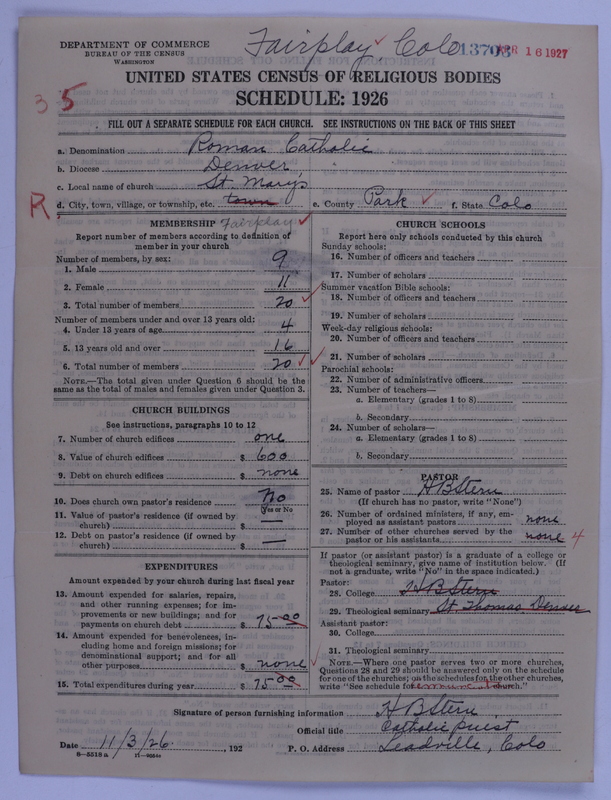 Fairplay ✓ Colo 13703 APR 16 1927
DEPARTMENT OF COMMERCE
BUREAU OF THE CENSUS
WASHINGTON
UNITED STATES CENSUS OF RELIGIOUS BODIES
SCHEDULE: 1926
35
FILL OUT A SEPARATE SCHEDULE FOR EACH CHURCH. SEE INSTRUCTIONS ON THE BACK OF THIS SHEET
a. Denomination Roman Catholic
b. Diocese Denver,
c. Local name of church St. Marys
R
d. City, town, village, or township, etc. town e. County Park ✓ f. State Colo
MEMBERSHIP Fairplay ✓
Report number of members according to definition of
member in your church
Number of members, by sex:
1. Male 9
2. Female 11
3. Total number of members 20 ✓
Number of members under and over 13 years old:
4. Under 13 years of age 4
5. 13 years old and over 16
6. Total number of members 20 ✓✓
NOTE.—The total given under Question 6 should be the
same as the total of males and females given under Question 3.
CHURCH BUILDINGS
See instructions, paragraphs 10 to 12
7. Number of church edifices one
8. Value of church edifices $ 600
9. Debt on church edifices $ none
10. Does church own pastor's residence No
(Yes or No)
11. Value of pastor's residence (if owned by
church) $ —
12. Debt on pastor's residence (if owned by
church) $ —
EXPENDITURES
Amount expended by your church during last fiscal year
13. Amount expended for salaries, repairs,
and other running expenses; for im-
provements or new buildings; and for
payments on church debt $ 75.00
14. Amount expended for benevolences, in-
cluding home and foreign missions; for
denominational support; and for all
other purposes $ none
15. Total expenditures during year $ 75.00
CHURCH SCHOOLS
Report here only schools conducted by this church
Sunday schools:
16. Number of officers and teachers
17. Number of scholars
Summer vacation Bible schools:
18. Number of officers and teachers
19. Number of scholars
Week-day religious schools:
20. Number of officers and teachers
21. Number of scholars
Parochial schools:
22. Number of administrative officers
23. Number of teachers—
a. Elementary (grades 1 to 8)
b. Secondary
24. Number of scholars—
a. Elementary (grades 1 to 8)
b. Secondary
PASTOR
25. Name of pastor H B Stern
(If church has no pastor, write "None")
26. Number of ordained ministers, if any, em-
ployed as assistant pastors none
27. Number of other churches served by the
pastor or his assistants none 4
If pastor (or assistant pastor) is a graduate of a college or
theological seminary, give name of institution below. (If
not a graduate, write "No" in the space indicated.)
Pastor:
28. College H B Stern
29. Theological seminary St. Thomas, Denver
Assistant pastor:
30. College
31. Theological seminary
NOTE.—Where one pastor serves two or more churches,
Questions 28 and 29 should be answered only on the schedule
for one of the churches; on the schedules for the other churches,
write "See schedule for church."
Signature of person furnishing information H B Stern
Official title Catholic priest
Date 11/3/26 , 192 P. O. Address Leadville, Colo
8—5518 a